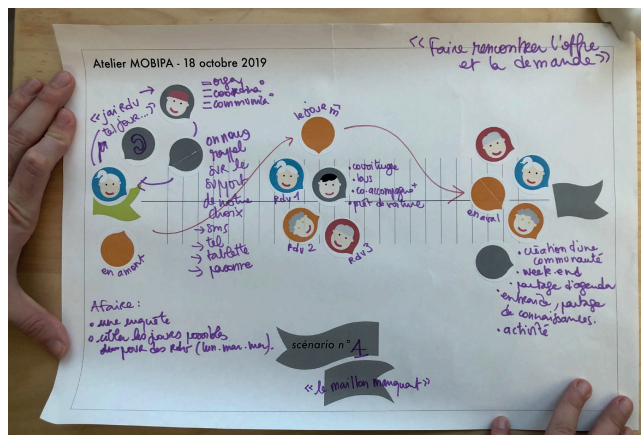 Atelier MOBIPA - 18 octobre 2019
<<Faire rencontrer l'offre
et la demande>>
<<j'ai rdv
tel jour...>>
orga
coordina°
communica°
on nous
rappel
sur le
support
de notre
choix
→ sms
→ tel
→ tablette
→ personne
en amont
le jour m̄
Rdv 1
Rdv 2
Rdv 3
• covoiturage
• bus
• co-accompagn
• prêt de voiture
en aval
• création d'une
communauté
• week-end
• partage d'agenda
• entraide, partage
de connaissances.
• activité
A faire :
• une enquête
• cibler les jours possibles
pour des Rdv (lun. mar. mer).
scénario n° 1
<<le maillon manquant>>